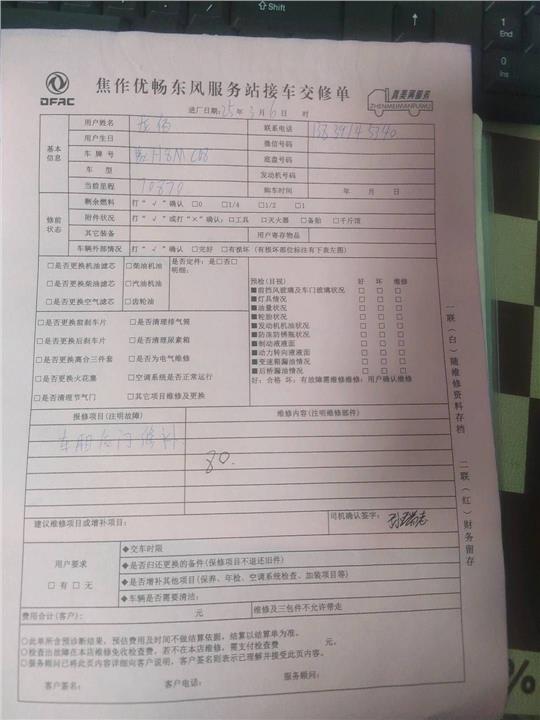 Shift
End
Ins
DFAC
焦作优畅东风服务站接车交修单
真美满服务
ZHENMEIMANFUWU
进厂日期:25年3月6日 时
用户姓名
联系电话
用户生日
微信号码
基本信息
车牌号
底盘号码
车型
发动机号码
当前里程 70870
购车时间 年 月 日
修前状态
剩余燃料 打“√”确认 □0 □1/4 □1/2 □1
附件状况 打“√”或打“×”确认:□工具 □灭火器 □备胎 □千斤顶
其它装备 用户寄存物品
车辆外部情况 打“√”确认 □完好 □有损坏(有损坏部位标注有下表左图)
□是否更换机油滤芯 □柴油机油 是否定件:是□否□
□是否更换柴油滤芯 □汽油机油 明细:
□是否更换空气滤芯 □齿轮油
预检(目视) 好 坏 维修
■前挡风玻璃及车门玻璃状况 □ □ □
■灯具情况 □ □ □
■油量状况 □ □ □
■轮胎状况 □ □ □
■发动机机油状况 □ □ □
■防冻防锈瓶状况 □ □ □
■制动液液面 □ □ □
■动力转向液液面 □ □ □
■变速箱漏油情况 □ □ □
■后桥漏油情况 □ □ □
好:合格 坏:有故障需维修维修:用户确认维修
□是否更换前刹车片 □是否清理排气筒
□是否更换后刹车片 □是否清理尿素箱
□是否更换离合三件套 □是否为电气维修
□是否更换火花塞 □空调系统是否正常运行
□是否清理节气门 □其它项目维修及更换
报修项目(注明故障) 维修内容(注明维修部件)
80.
建议维修项目或增补项目:
司机确认签字:
用户要求
□有□无
◆交车时限
◆是否归还更换的备件(保修项目不退还旧件)
◆是否增补其他项目(保养、年检、空调系统检查、加装项目等)
◆车辆是否需要清洁:
费用合计(客户): 元 维修及三包件不允许带走
○此单所含预诊断结果,预估费用及时间不做结算依据,结算以结算单为准。
○检查出故障在本店维修免收检查费,若不在本店维修,需支付检查费 元。
○服务顾问已将此页内容详细向客户说明,客户签名则表示已理解并接受此页内容。
客户签名: 客户电话: 服务顾问:
一联(白)随维修资料存档
二联(红)财务留存
%